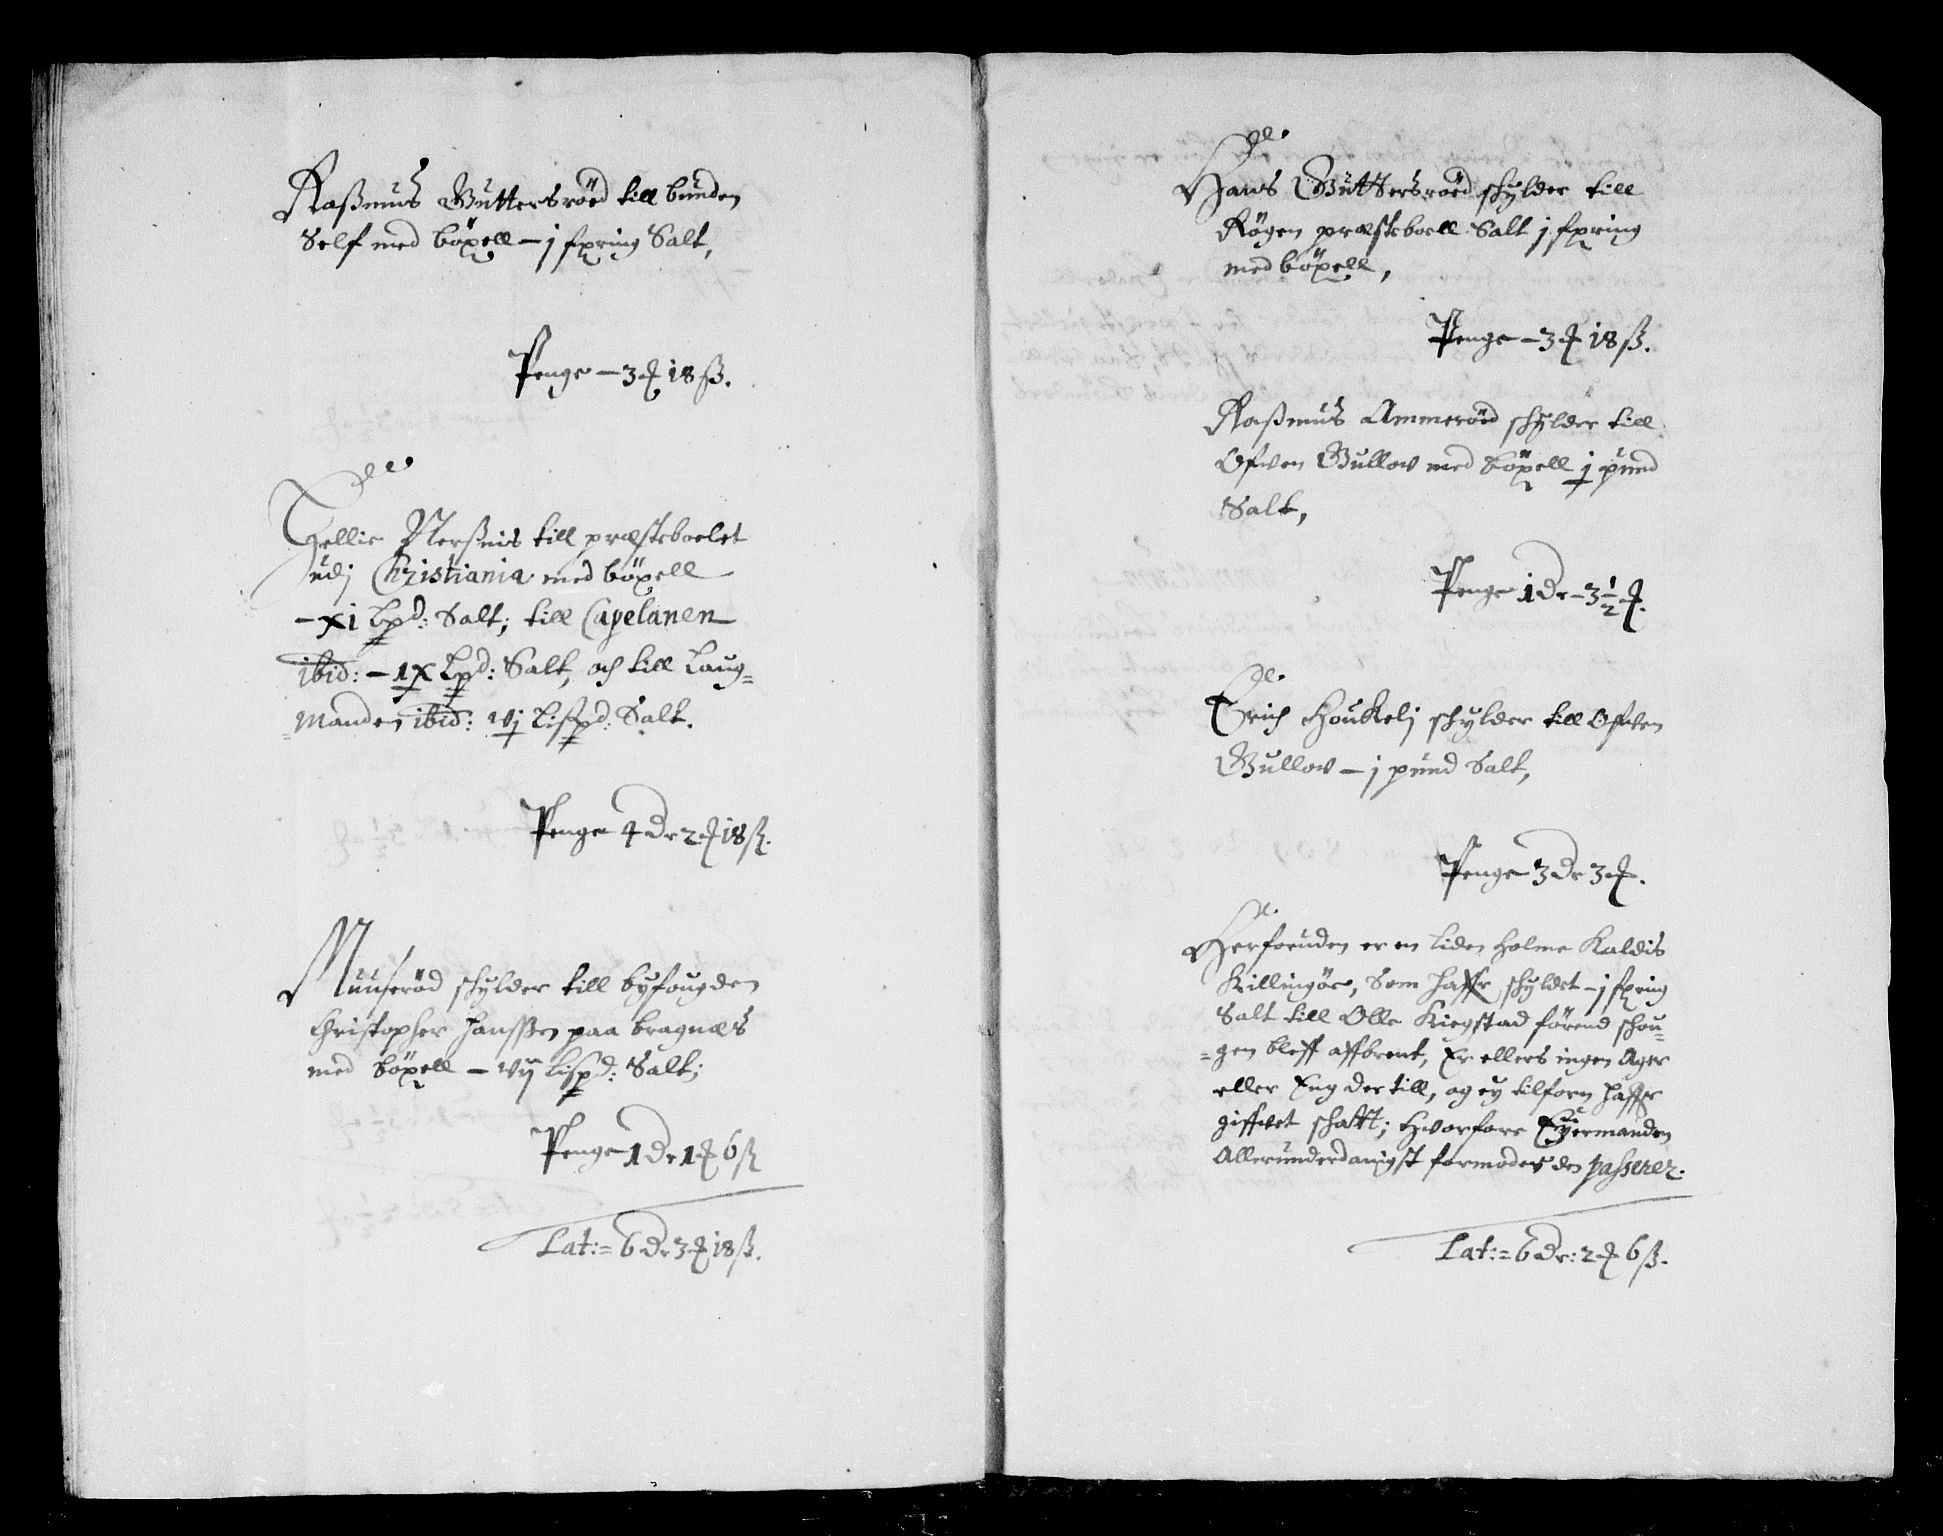 Raßmus Guttersröed till bunden
Self med böxell – j fxring Salt,
Penge – 3 ₰ 18 ß.
Gellie Nerßnis till præsteboelet
udj Christiania med böxell
– xi Lpd: Salt; till Capelanen
ibid: – ix Lpd: Salt, och till Laug=
=manden ibid: vj Lißpd: Salt.
Penge 4 Dr 2 ₰ 18 ß.
Muuseröd schylder till byfougden
Christopher Hanssßen paa bragnæs
med böxell – vij Lispd: Salt;
Penge 1 Dr 1 ₰ 6 ß
Lat: = 6 Dr 3 ₰ 18 ß.
Hans Guttersröed schylder till
Rögen præsteboell Salt j fxring
med böxell,
Penge – 3 ₰ 18 ß.
Raßmus Ammeröed schylder till
Ofven Gullow med böxell j pund
Salt,
Penge 1 Dr – 3 1/2 ₰.
Erich Houkelj schylder till Ofven
Gullow – j pund Salt,
Penge 3 Dr 3 ₰.
Herforuden er en liden Holme Kaldis
Killingöe, Som haffr schyldet – j fxring
Salt till Olle Kiegstad förend schou=
=gen bleff affbrent, Er ellers ingen Ager
eller Eng der till, og ey tilforn haffr
giffvet schatt; Hvorfore Eyermanden
Allerunderdanigst formoder den passerer.
Lat: = 6 Dr: 2 ₰ 6 ß.